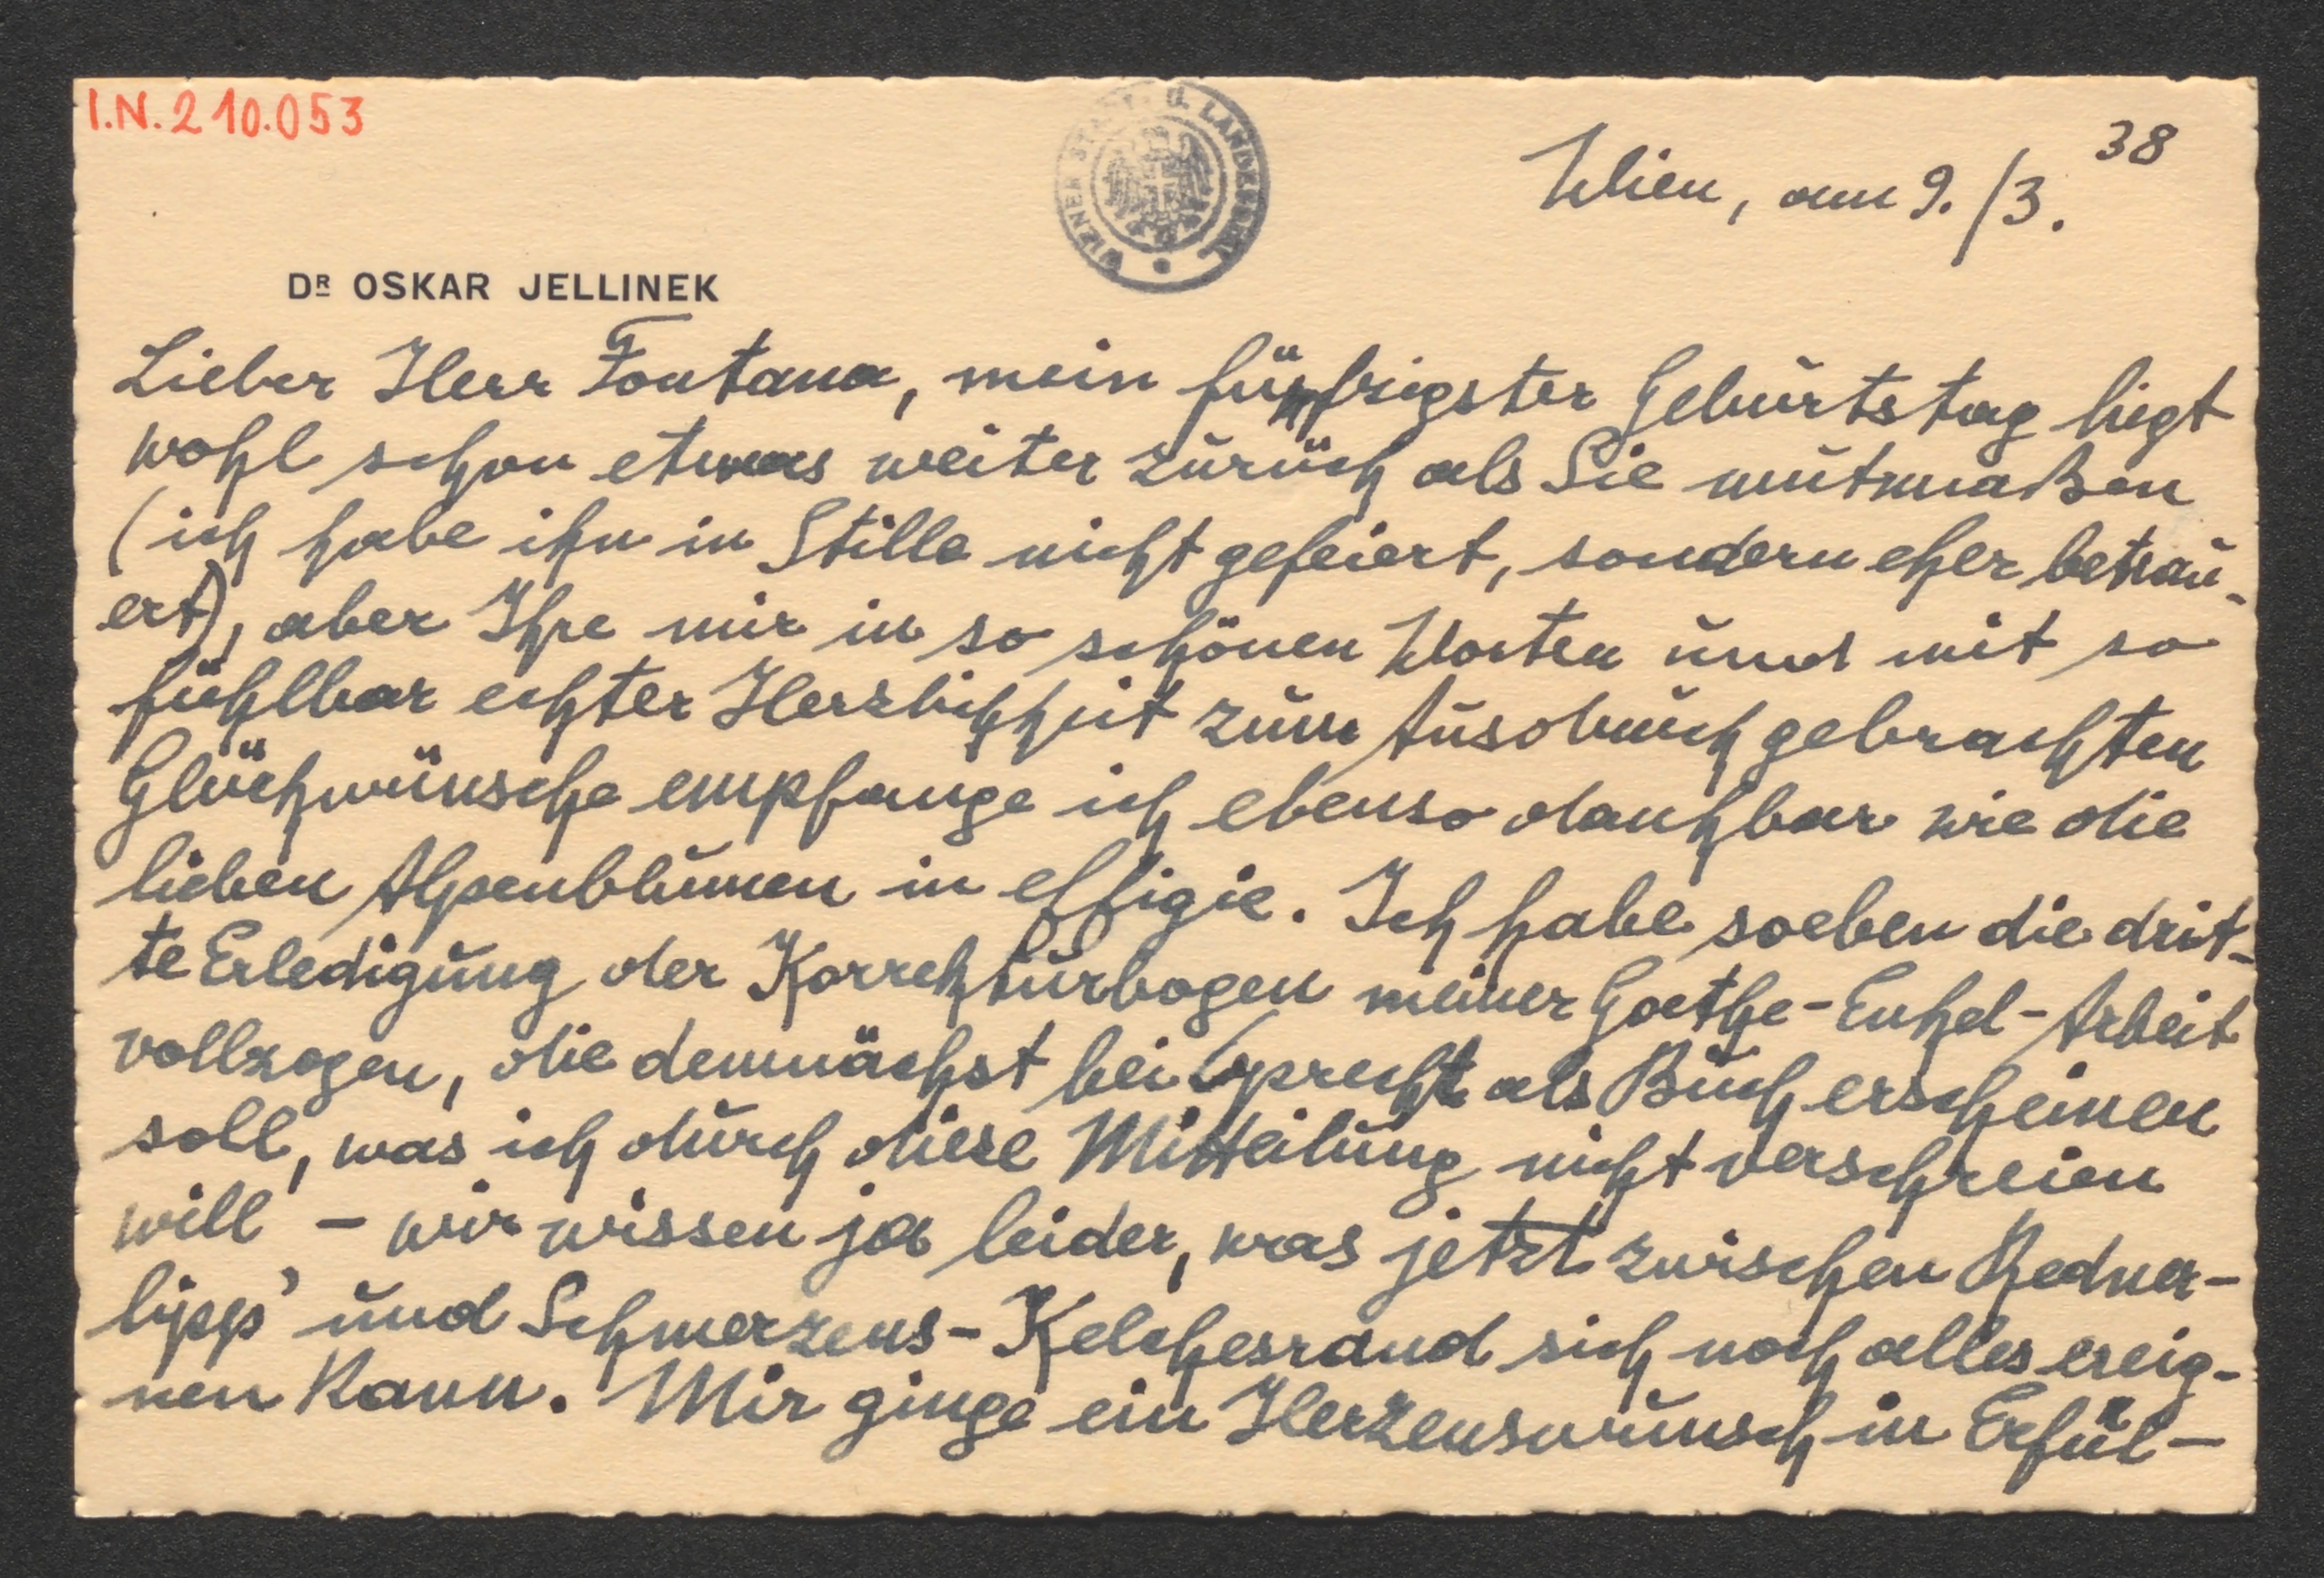 I.N. 210.053
WIENER STADT- U. LANDESBIBL.
Wien, am 9./3. 38
DR OSKAR JELLINEK
Lieber Herr Fontana, mein fünfzigster Geburtstag liegt
wohl schon etwas weiter zurück als Sie mutmaßen
(ich habe ihn in Stille nicht gefeiert, sondern eher betrau-
ert), aber Ihre mir in so schönen Worten und mit so
fühlbar echter Herzlichkeit zum Ausdruck gebrachten
Glückwünsche empfange ich ebenso dankbar wie die
lieben Alpenblumen in effigie. Ich habe soeben die drit-
te Erledigung der Korrekturbogen meiner Goethe-Enkel-Arbeit
vollzogen, die demnächst bei Oprecht als Buch erscheinen
soll, was ich durch diese Mitteilung nicht verschreien
will – wir wissen ja leider, was jetzt zwischen Redner-
lipp' und Schmerzens-Kelchesrand sich noch alles ereig-
nen kann. Mir ginge ein Herzenswunsch in Erfül-